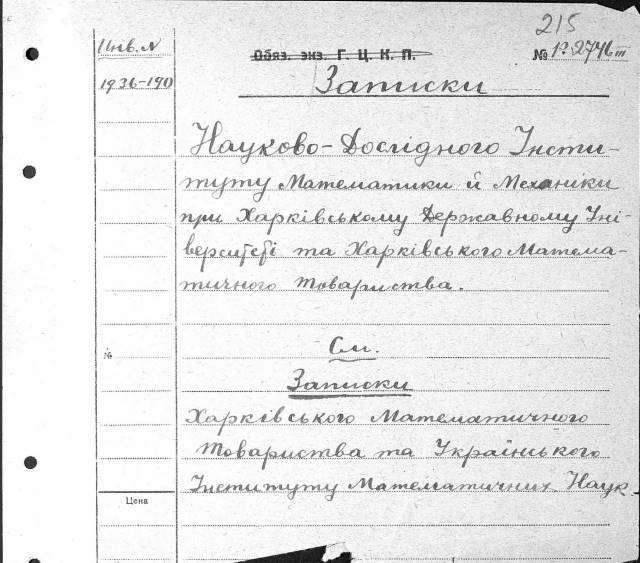 215
Инв. N
Обяз. экз. Г. Ц. К. П.
№ 1º2746 III
1936-190
Записки
Науково-Дослідного Інсти-
туту Математики й Механіки
при Харківському Державному Уні-
верситеті та Харківського Матема-
тичного товариства.
См.
№
Записки
Харківського Математичного
товариства та Українського
Інституту Математичних Наук.
Цена